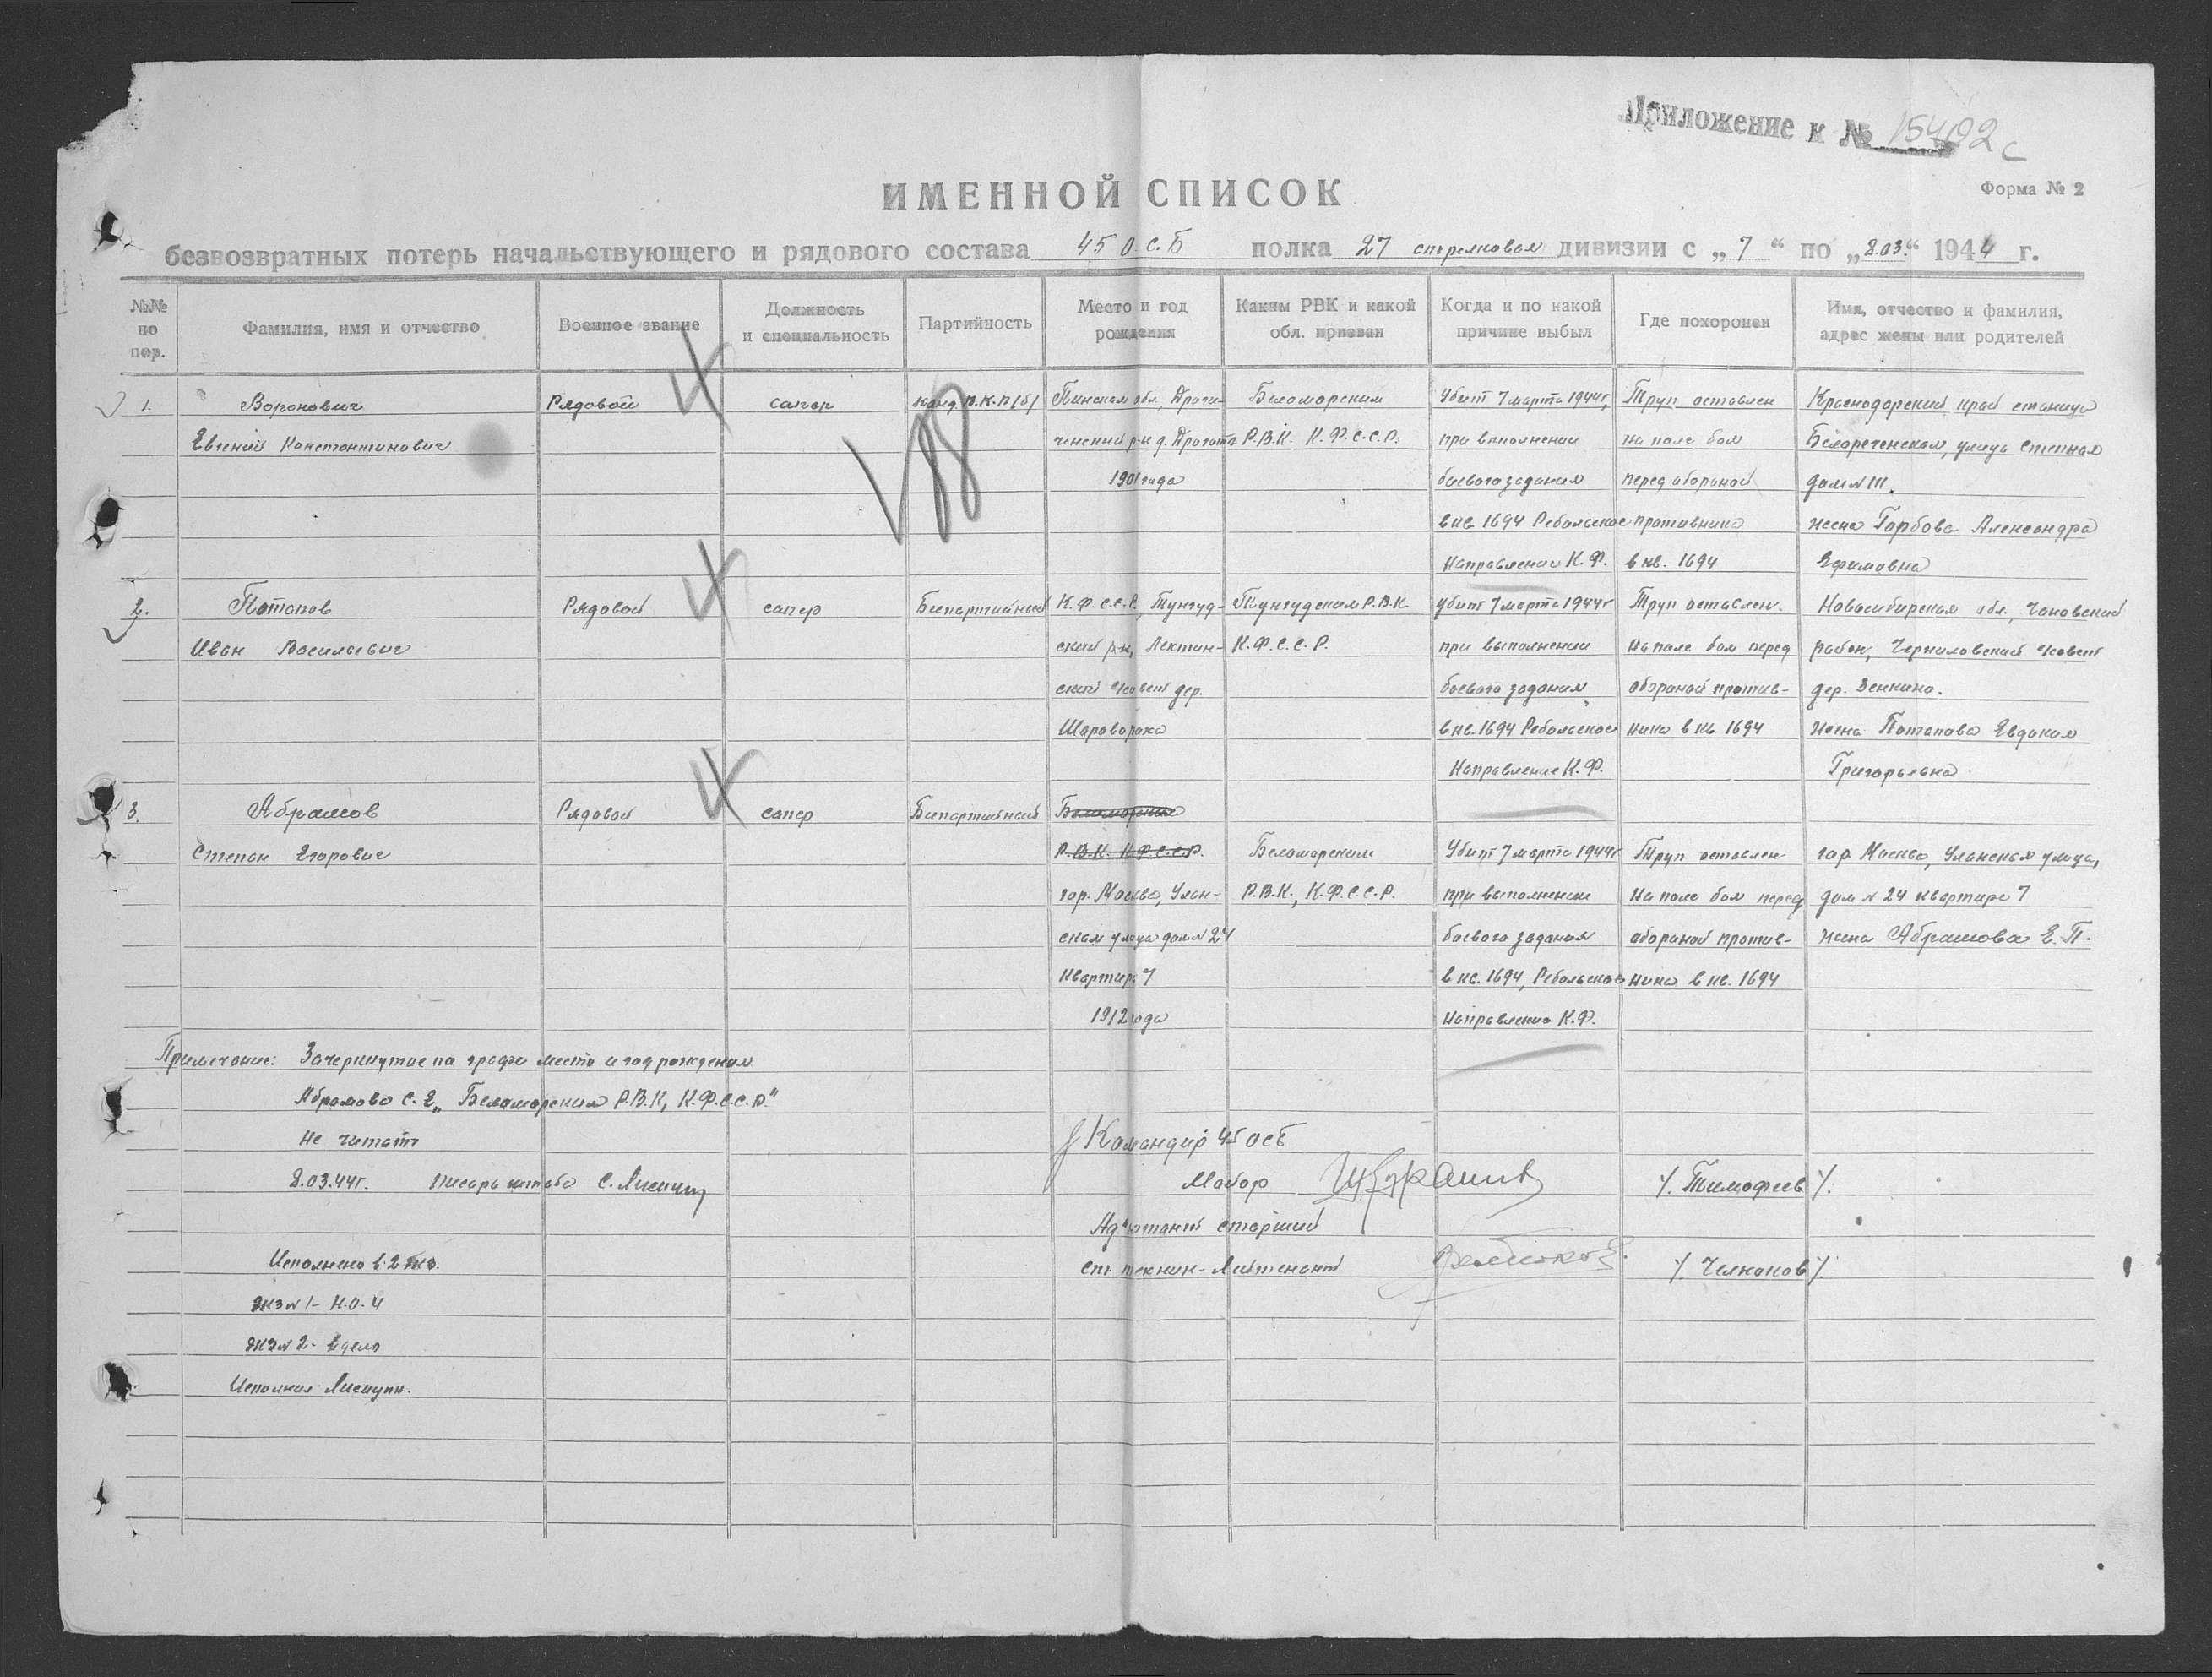 Приложение к № 15402с
ИМЕННОЙ СПИСОК
Форма № 2
безвозвратных потерь начальствующего и рядового состава 45 О.С.Б полка 27 стрелковая дивизии с „7“ по „8.03.“ 1944 г.
№№ по пор.
Фамилия, имя и отчество
Военное звание
Должность и специальность
Партийность
Место и год рождения
Каким РВК и какой обл. призван
Когда и по какой причине выбыл
Где похоронен
Имя, отчество и фамилия, адрес жены или родителей
88
1. Воронович Рядовой сапер канд. В.К.П(б) Пинская обл., Дроги- Беломорским Убит 7 марта 1944г, Труп оставлен Краснодарский край станица
Евгений Константинович ченский р-н д. Р.В.К. К.Ф.С.С.Р. при выполнении на поле боя Белореченская, улица Степная
1901 года боевого задания перед обороной дом N 111.
в кв. 1694 Ребольское противника жена Горбова Александра
Направление К.Ф. в кв. 1694 Ефимовна
2. Потапов Рядовой сапер Беспартийный К.Ф.С.С.Р., Тунгуд- Тунгудским Р.В.К. убит 7 марта 1944г Труп оставлен. Новосибирская обл., Чановский
Иван Васильевич ский р-н, Лехтин- К.Ф.С.С.Р. при выполнении на поле боя перед район, Черниловский совет
ский совет дер. боевого задания обороной против- дер. Зенкина.
Шараворака в кв. 1694 Ребольское ника в кв. 1694 жена Потапова Евдокия
Направление К.Ф. Григорьевна
3. Абрамов Рядовой сапер Беспартийный Беломорским
Степан Егорович Р.В.К. К.Ф.С.С.Р. Беломорским Убит 7 марта 1944г Труп оставлен гор. Москва, Уланская улица,
гор. Москва, Улан- Р.В.К., К.Ф.С.С.Р. при выполнении на поле боя перед дом N 24 квартира 7
ская улица дом N 24 боевого задания обороной против- жена Абрамова Е.П.
квартира 7 в кв. 1694, Ребольское ника в кв. 1694
1912 года Направление К.Ф.
Примечание: Зачеркнутое на графе место и год рождения
Абрамова С.Е. „Беломорским Р.В.К, К.Ф.С.С.Р.“
Не читать
8.03.44г. писарь штаба
Командир 45 осб
Майор /. Тимофеев /.
Ад'ютант старший
ст. техник-Лейтенант /. Челноков /.
Исполнено в 2 экз.
экз N 1- Н.О.4
экз N 2- в дело
Исполнил